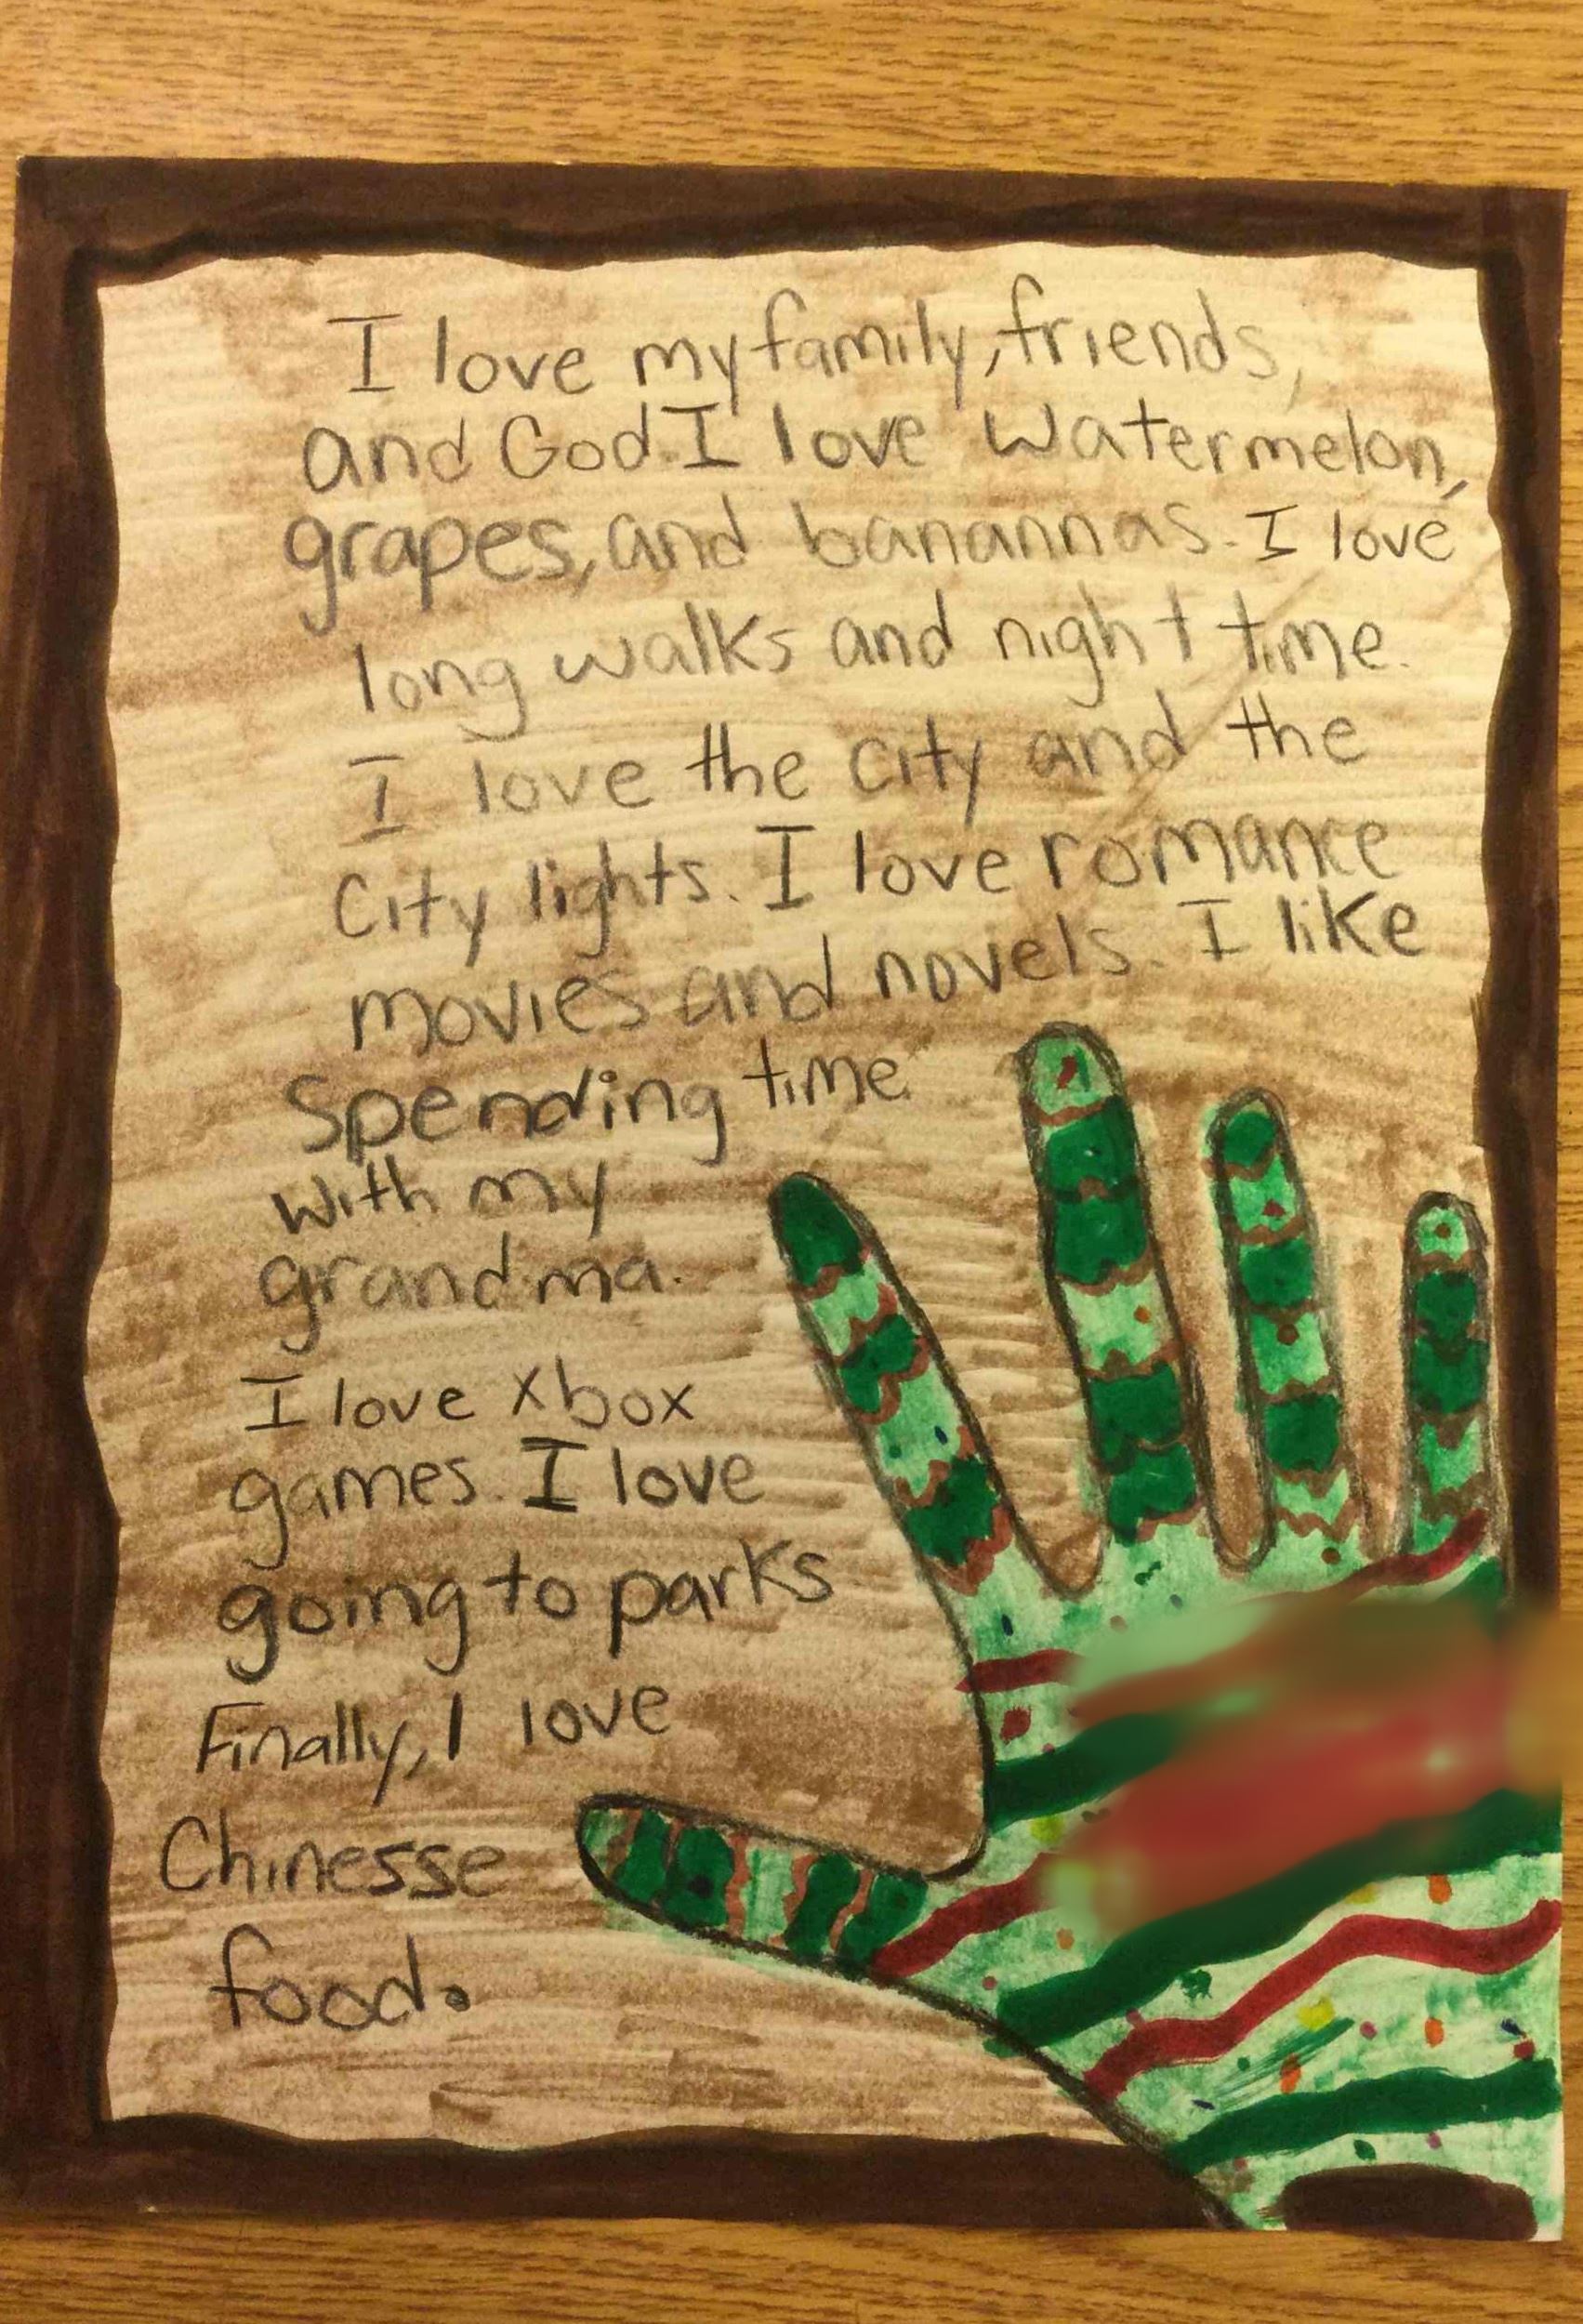 I love my family, friends,
and God. I love watermelon,
grapes, and banannas. I love
long walks and night time.
I love the city and the
City lights. I love romance
movies and novels. I like
Spending time
with my
grandma.
I love xbox
games. I love
going to parks
Finally, I love
Chinesse
food.